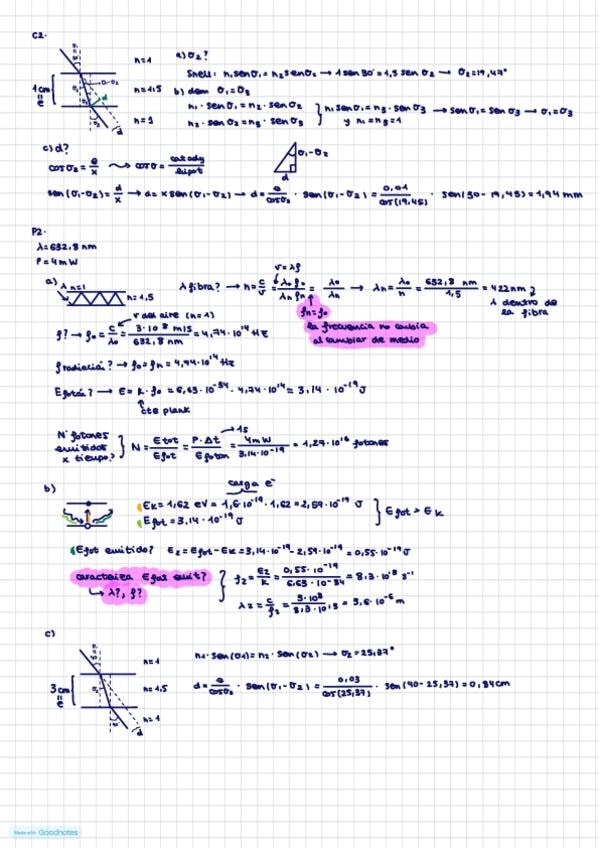 C2.
n=1
1cm=e
n=1,5
n=1
a) σ2?
Snell: n1 sen σ1 = n2 sen σ2 → 1 sen 30 = 1,5 sen σ2 → σ2 = 19,47°
b) dem σ1 = σ3
n1 · sen σ1 = n2 · sen σ2
n2 · sen σ2 = n3 · sen σ3
} n1 sen σ1 = n3 · sen σ3 → sen σ1 = sen σ3 → σ1 = σ3
y n1 = n3 = 1
c) d?
cos σ2 = e/x ⇝ cos σ = cat ady/hipot
σ1-σ2
d
sen (σ1-σ2) = d/x → d = x sen (σ1-σ2) → d = e/cos σ2 · sen (σ1-σ2) = 0,01/cos(19,45) · sen(30-19,45) = 1,94 mm
P2.
λ = 632,8 nm
P = 4 mW
a) λ n=1
n=1,5
v = λf
λ fibra? → n = c/v = λ0 f0/λn fn = λ0/λn → λn = λ0/n = 632,8 nm/1,5 = 422 nm
λ dentro de la fibra
fn = f0
la frecuencia no cambia
al cambiar de medio
v del aire (n=1)
f? → f0 = c/λ0 = 3·10^8 m/s/632,8 nm = 4,74·10^14 Hz
f radiación? → f0 = fn = 4,74·10^14 Hz
E fotón? → E = h · f0 = 6,63·10^-34 · 4,74·10^14 = 3,14·10^-19 J
cte plank
Nº fotones
emitidos
x tiempo?
} N = E tot/E fot = P·Δt/E foton = 4mW/3,14·10^-19 = 1,27·10^16 fotones
1s
b)
carga e-
Ek = 1,62 eV = 1,6·10^-19 · 1,62 = 2,59·10^-19 J
Efot = 3,14·10^-19 J
} Efot > Ek
Efot emitido? E2 = Efot - Ek = 3,14·10^-19 - 2,59·10^-19 = 0,55·10^-19 J
caracteriza Efot emit?
↳ λ?, f?
} f2 = E2/h = 0,55·10^-19/6,63·10^-34 = 8,3·10^13 s^-1
λ2 = c/f2 = 3·10^8/8,3·10^13 = 3,6·10^-6 m
c)
n=1
3cm=e
n=1,5
n=1
n1 · sen(σ1) = n2 · sen(σ2) → σ2 = 25,37°
d = e/cos σ2 · sen(σ1-σ2) = 0,03/cos(25,37) · sen(40-25,37) = 0,84cm
Made with Goodnotes